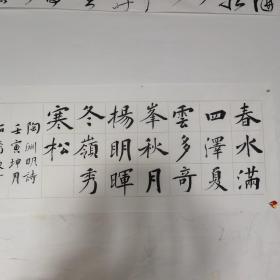 春水滿
四澤夏
雲多奇
峯秋月
楊明暉
冬嶺秀
寒松
陶淵明詩
壬寅坤月